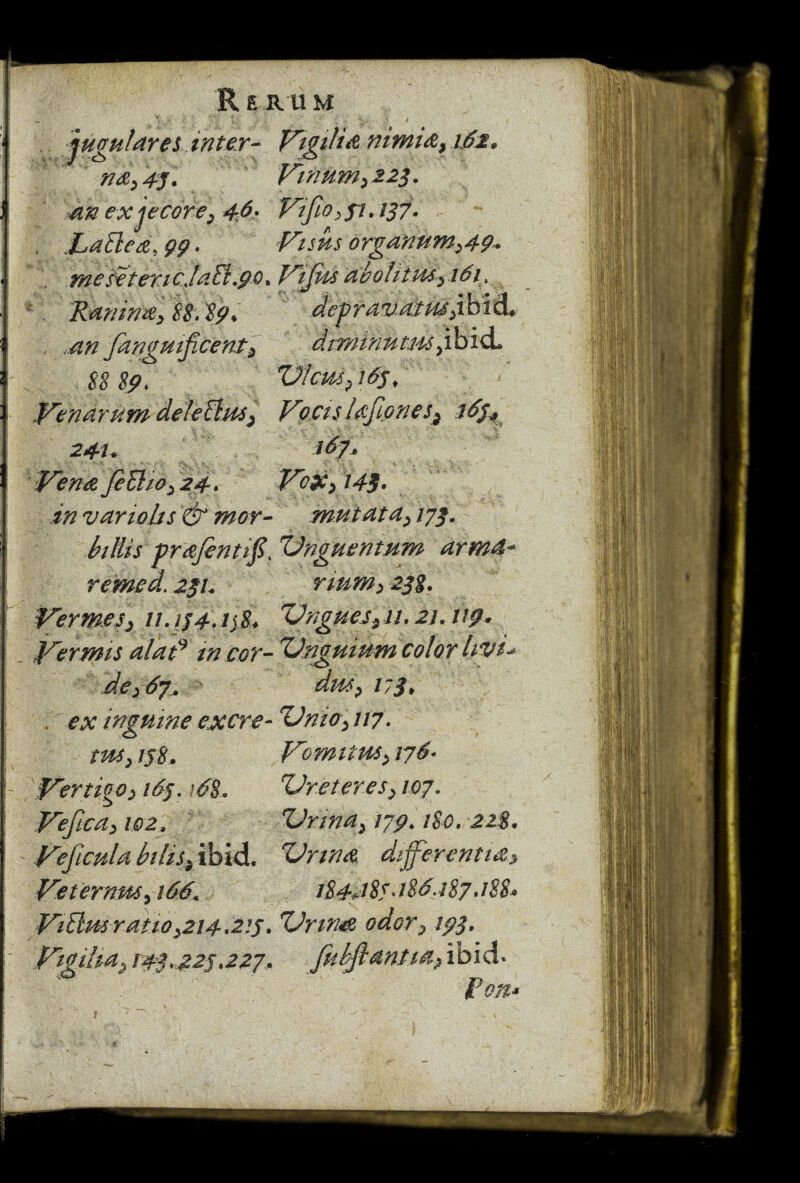 RERUM
jugulares inter-
næ, 45.
an ex jecore, 46.
Lacteæ, 99.
meseteric. lact. 90.
Raninæ, 88. 89.
an sanguificent,
88 89.
Venarum delectus,
241.
Venæ sectio, 24.
in variolis & mor-
billis præsentiss.
remed. 231.
Vermes, 11. 154. 158.
Vermis alatꝰ in cor-
de, 67.
ex inguine excre-
tus, 158.
Vertigo, 165. 168.
Vesica, 102.
Vesicula bilis, ibid.
Veternus, 166.
Victus ratio, 214. 215.
Vigilia, 143. 225. 227.
Vigiliæ nimiæ, 162.
Vinum, 223.
Visio, 51. 137.
Visus organum, 49.
Visus abolitus, 161.
depravatus, ibid.
diminutus, ibid.
Vlcus, 165.
Vocis læsiones, 165.
167.
Vox, 143.
mutata, 173.
Vnguentum arma-
rium, 238.
Vngues, 11. 21. 119.
Vnguium color livi-
dus, 173.
Vnio, 117.
Vomitus, 176.
Vreteres, 107.
Vrina, 179. 180. 228.
Vrinæ differentiæ,
184. 185. 186. 187. 188.
Vrinæ odor, 193.
substantia, ibid.
Pon-